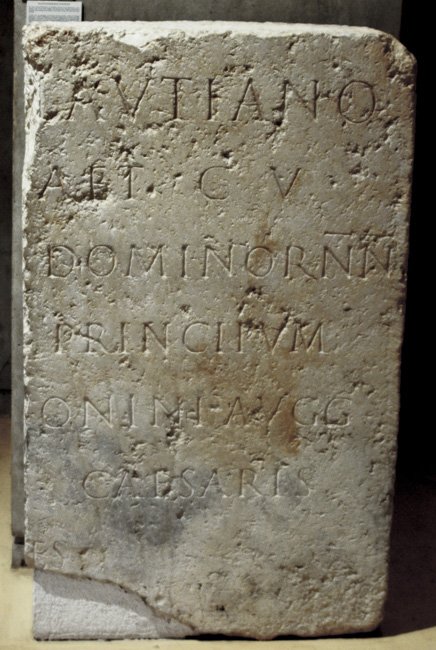 AVTIANO
AET C V
DOMINORNN
PRINCIPVM
ONINI AVGG
CAESARIS
ES